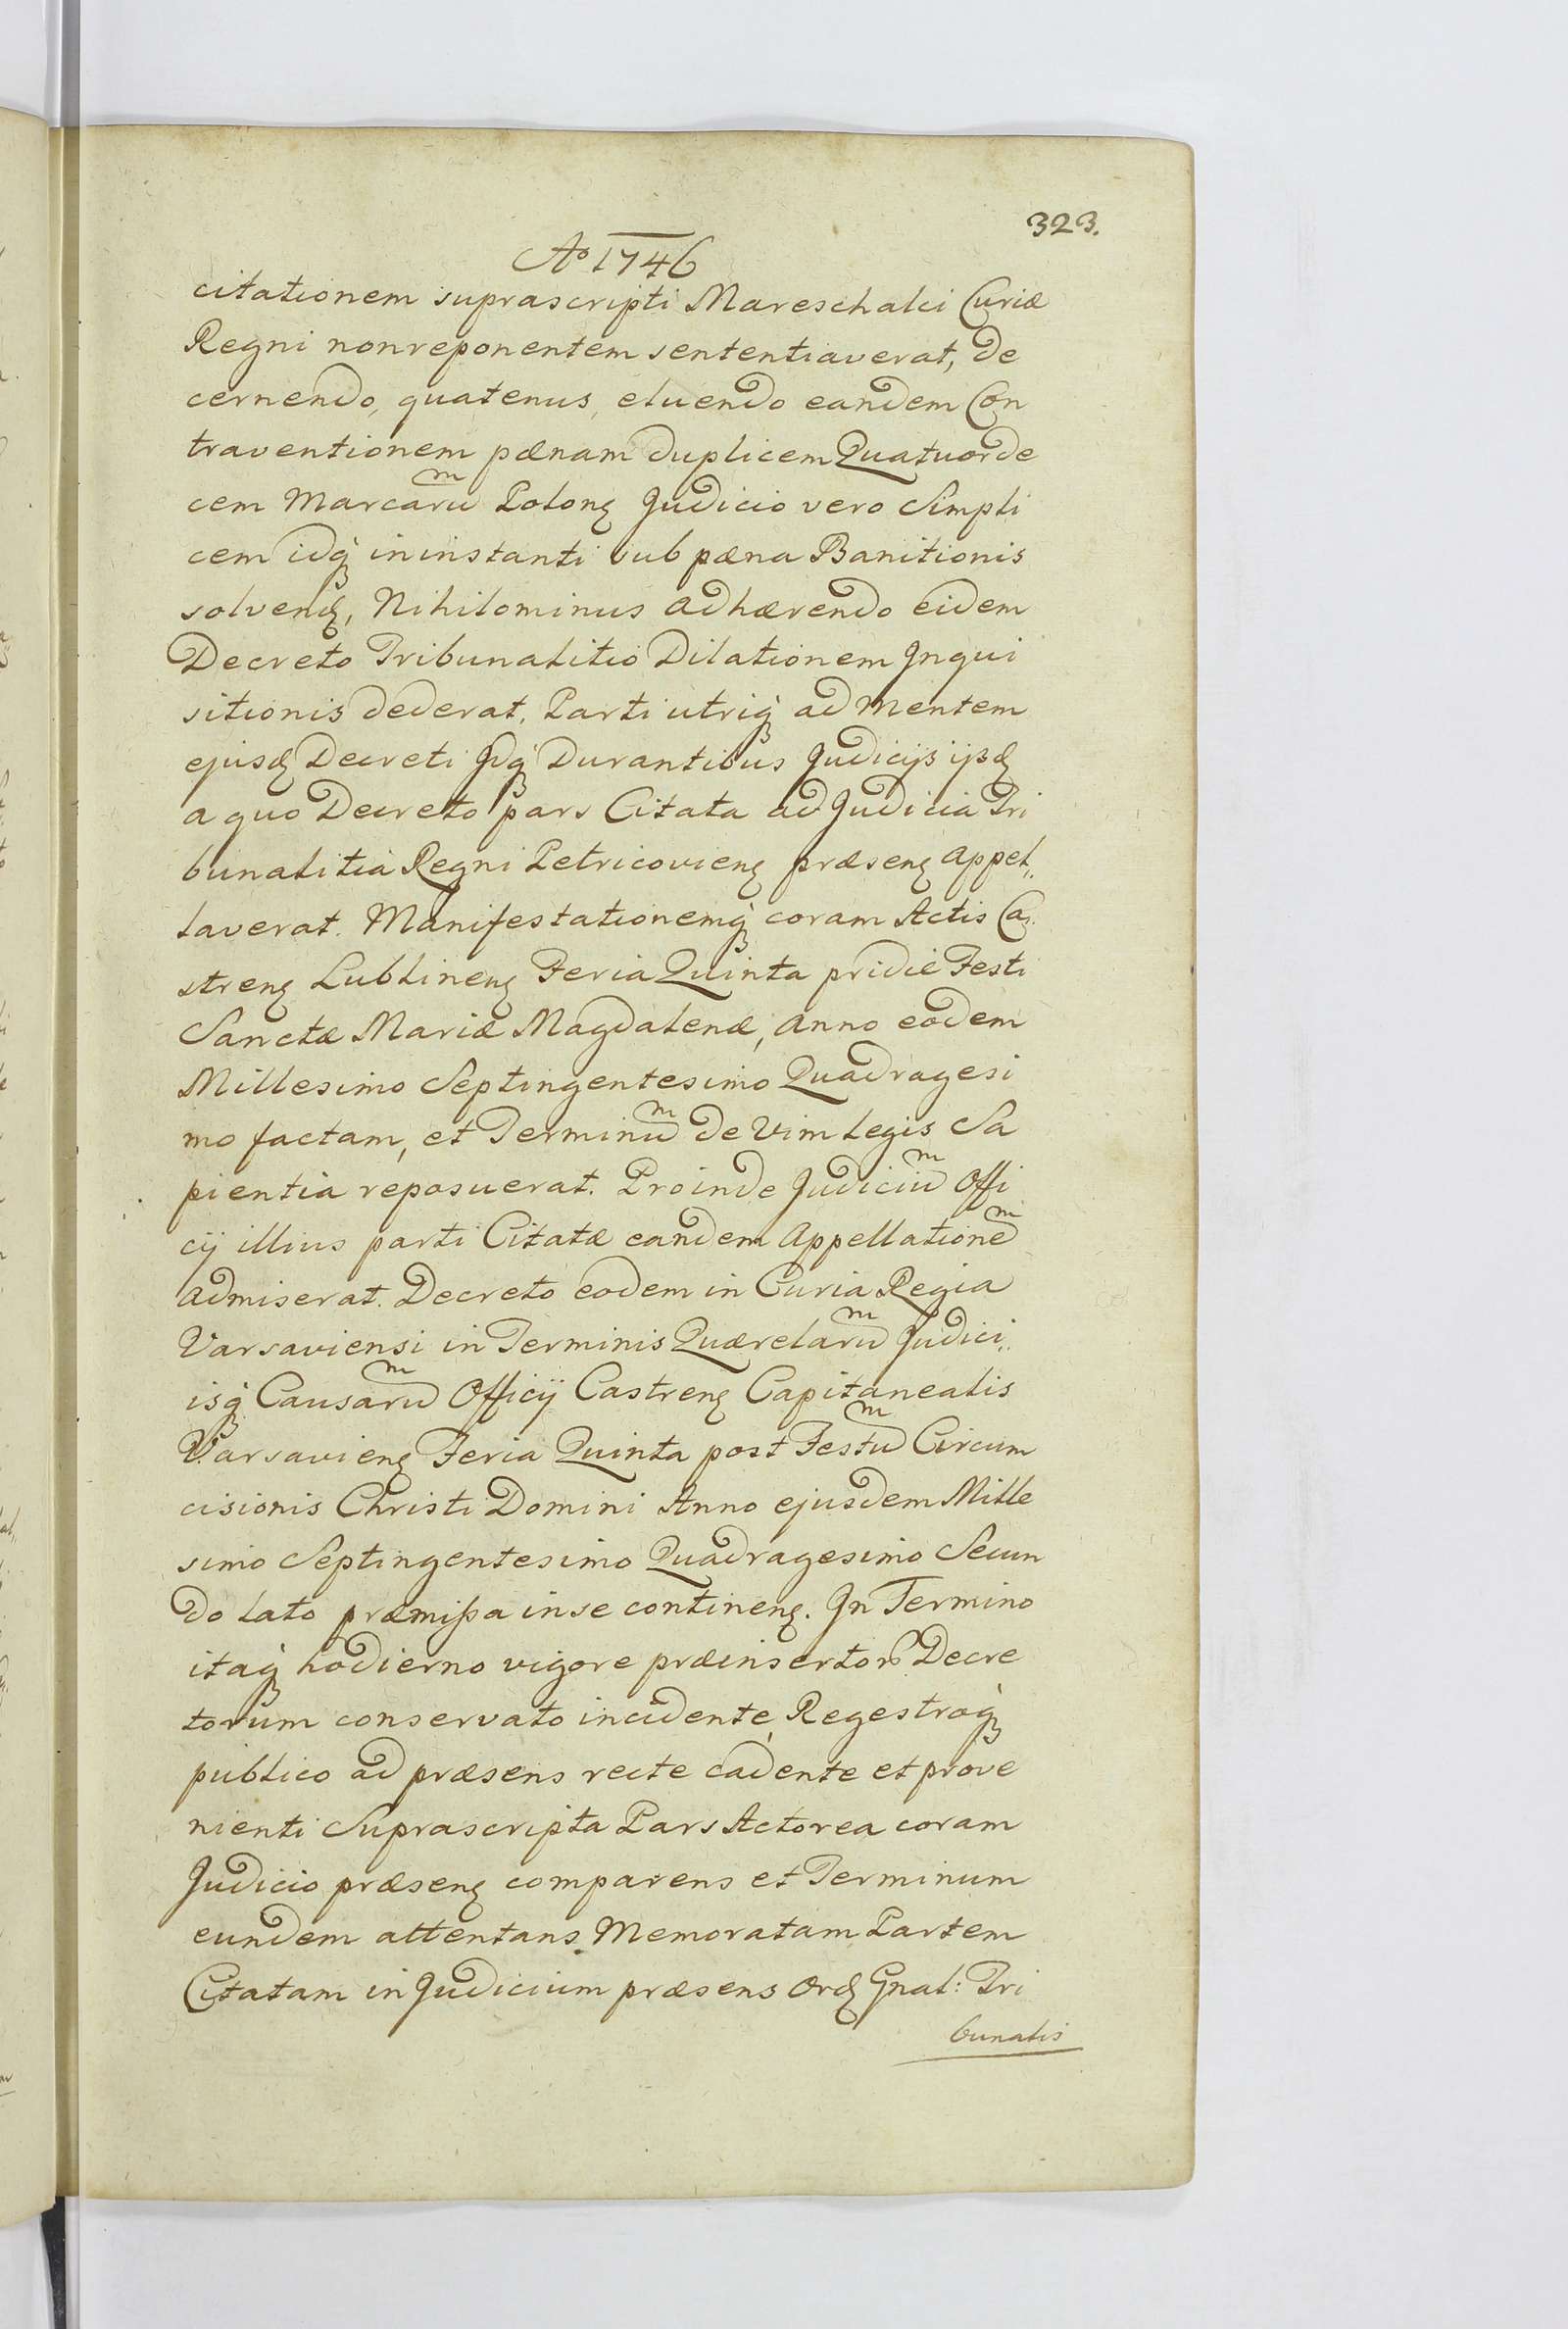 323.
Ao 1746
citationem suprascripti Mareschalci Curiæ
Regni nonreponentem sententiaverat, de
cernendo, quatenus, eluendo eandem Con
traventionem pænam duplicem Quatuorde
cem Marcarum Polonę Judicio vero Simpli
cem idq́ ininstanti sub pæna Banitionis
solvendę, Nihilominus adhærendo eidem
Decreto Tribunalitio Dilationem Inqui
sitionis dederat, Parti utriq́ ad Mentem
ejusdę Decreti Idq́ Durantibus Judicijs ijsdę
a quo Decreto pars Citata ad Judicia Tri
bunalitia Regni Petricovienę præsenę appel„
laverat. Manifestationemq́ coram Actis Ca„
strenę Lublinenę Feria Quinta pridie Festi
Sanctæ Mariæ Magdalenæ, anno eodem
Millesimo Septingentesimo Quadragesi
mo factam, et Terminum de Vim Legis Sa
pientia reposuerat. Proinde Judicium Offi
cij illius parti Citatæ eandem Appellationem
admiserat. Decreto eodem in Curia Regia
Varsaviensi in Terminis Quærelarum Judici„
isq́ Causarum Officij Castrenę Capitanealis
Varsavienę Feria Quinta post Festum Circum
cisionis Christi Domini Anno ejusdem Mille
simo Septingentesimo Quadragesimo Secun
do lato præmissa inse continenę. In Termino
itaq́ hodierno vigore præinsertor Decre
torum conservato incidente, Regestroq́
publico ad præsens recte cadente et prove
nienti Suprascripta Pars Actorea coram
Judicio præsenę comparens et Terminum
eundem attentans Memoratam Partem
Citatam in Judicium præsens Ordę Gnal: Tri
bunalis